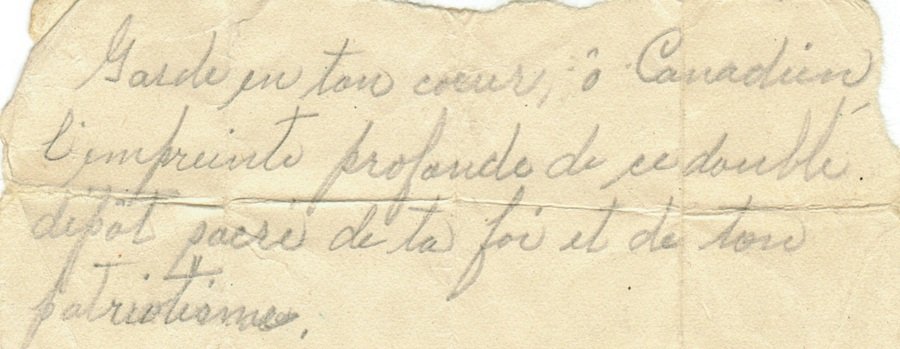 Garde en ton coeur, ô Canadien,
l'empreinte profonde de ce double
dépôt sacré de ta foi et de ton
patriotisme.